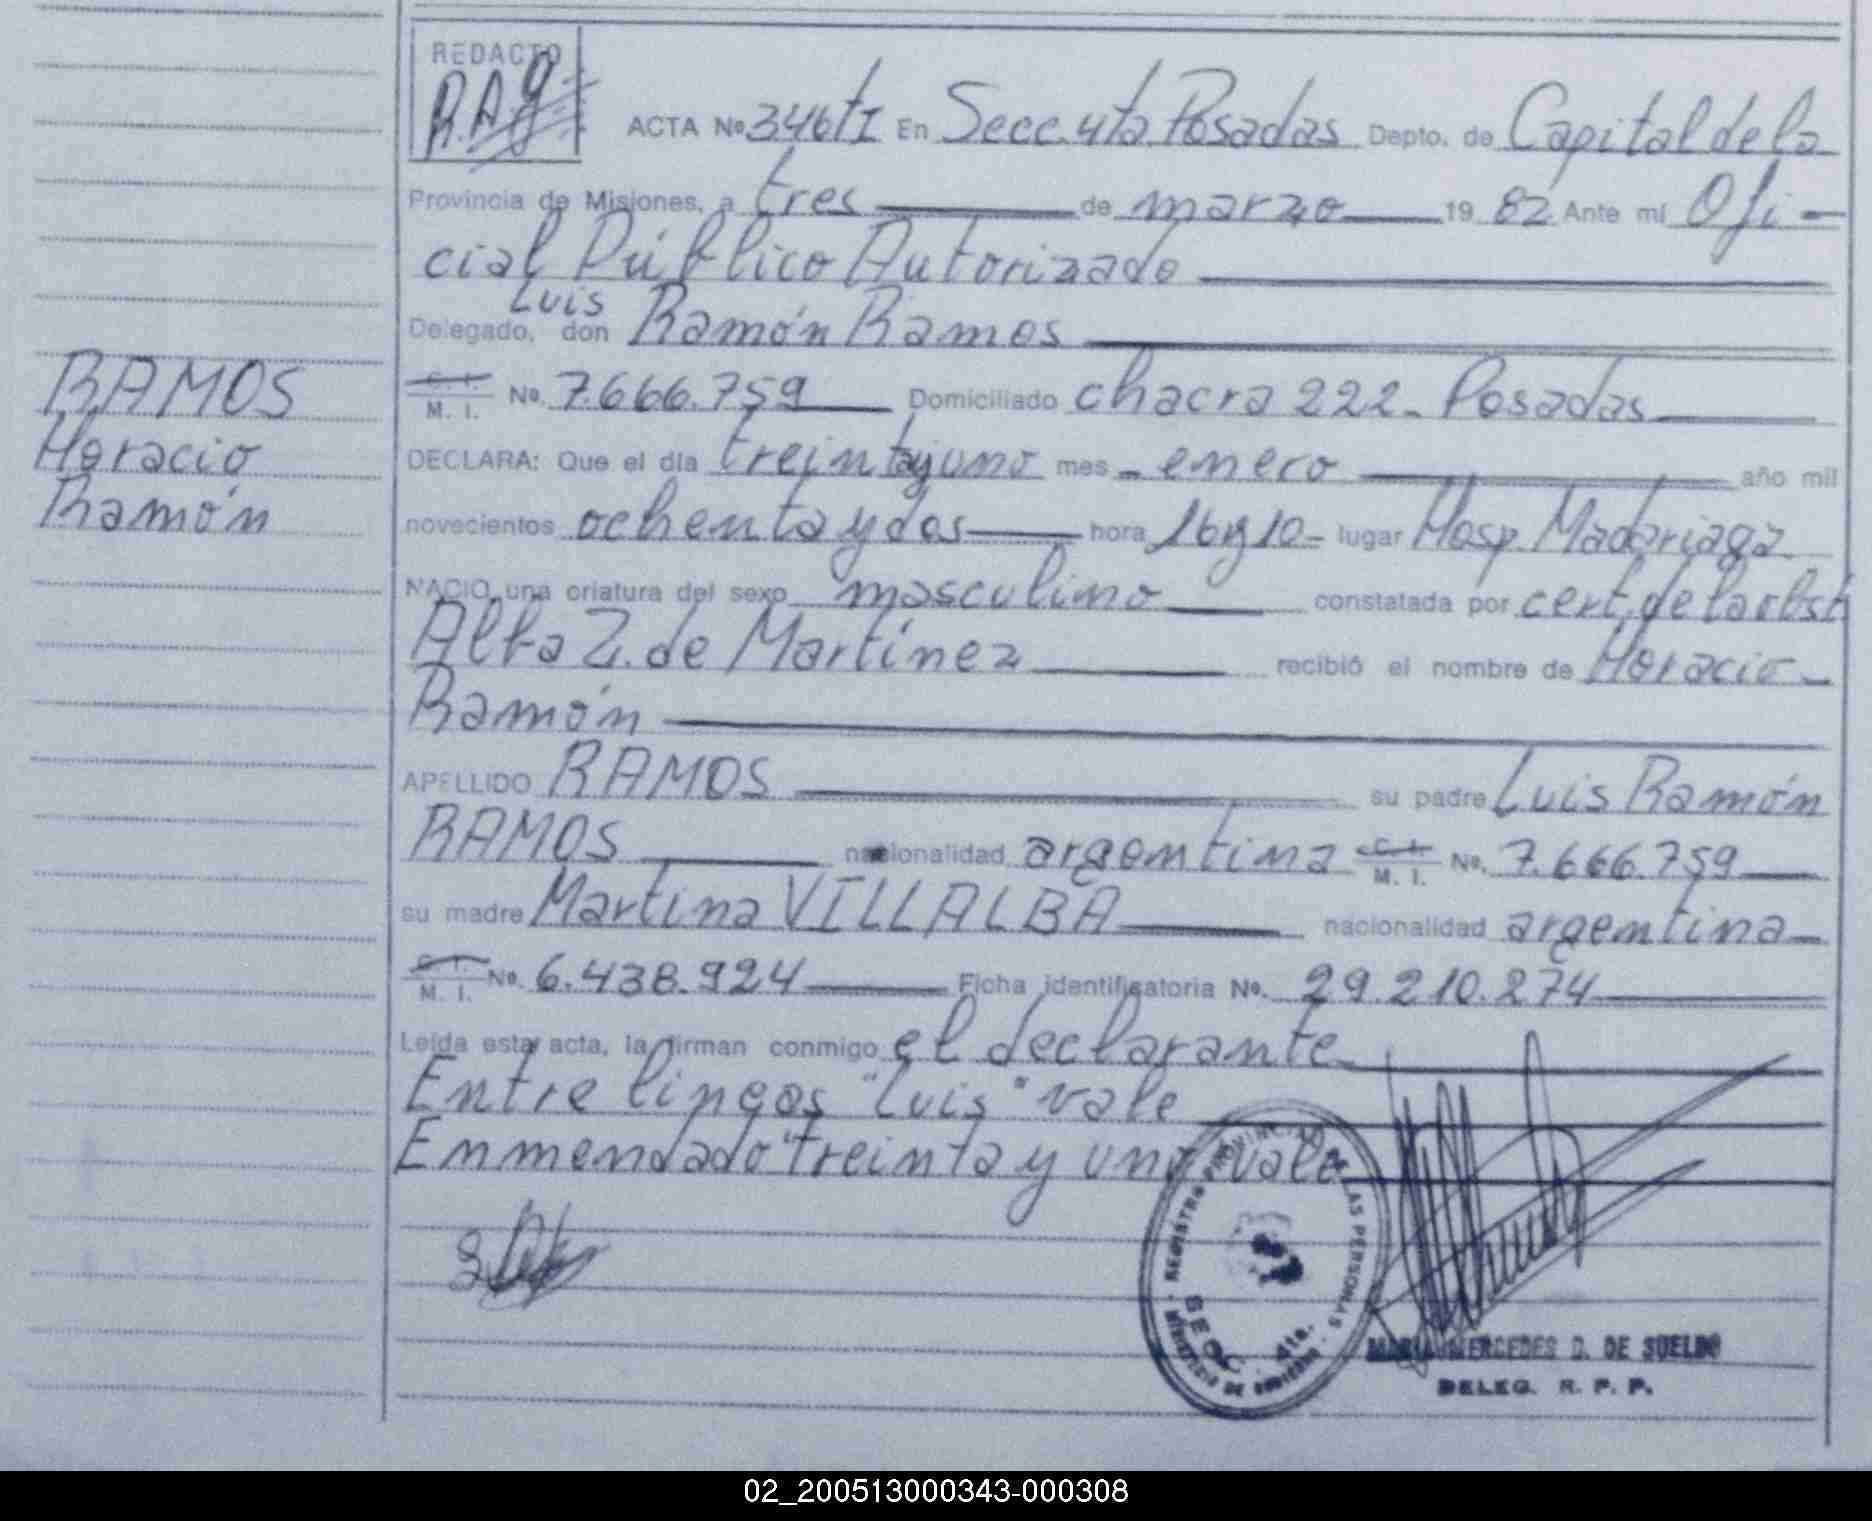 REDACTO
R.A.g
ACTA Nº 346 tI En Secc. 4ta. Posadas Depto. de Capital de la
Provincia de Misiones, a tres de marzo 19 82 Ante mí Ofi-
cial Público Autorizado
Luis
Delegado, don Ramón Ramos
C. I.
M. I. Nº. 7.666.759 Domiciliado chacra 222- Posadas
RAMOS
Horacio
Ramón
DECLARA: Que el día treintayuno mes - enero año mil
novecientos ochenta y dos hora 16 y 10- lugar Hosp. Madariaga
NACIO una criatura del sexo masculino constatada por cert. de la obst
Alba Z. de Martínez recibió el nombre de Horacio-
Ramón
APELLIDO RAMOS su padre Luis Ramón
RAMOS nacionalidad argentina C. I. M. I. Nº. 7.666.759
su madre Martina VILLALBA nacionalidad argentina
C. I. M. I. Nº. 6.438.924 Ficha identificatoria Nº. 29.210.274
Leída esta acta, la firman conmigo el declarante
Entre lineas "Luis" vale
Enmendado "treinta y uno vale
REGISTRO PROVINCIAL DE LAS PERSONAS
MINISTERIO DE GOBIERNO
SECC. 4ta.
MARIA MERCEDES D. DE SUELDO
DELEG. R. P. P.
02_200513000343-000308